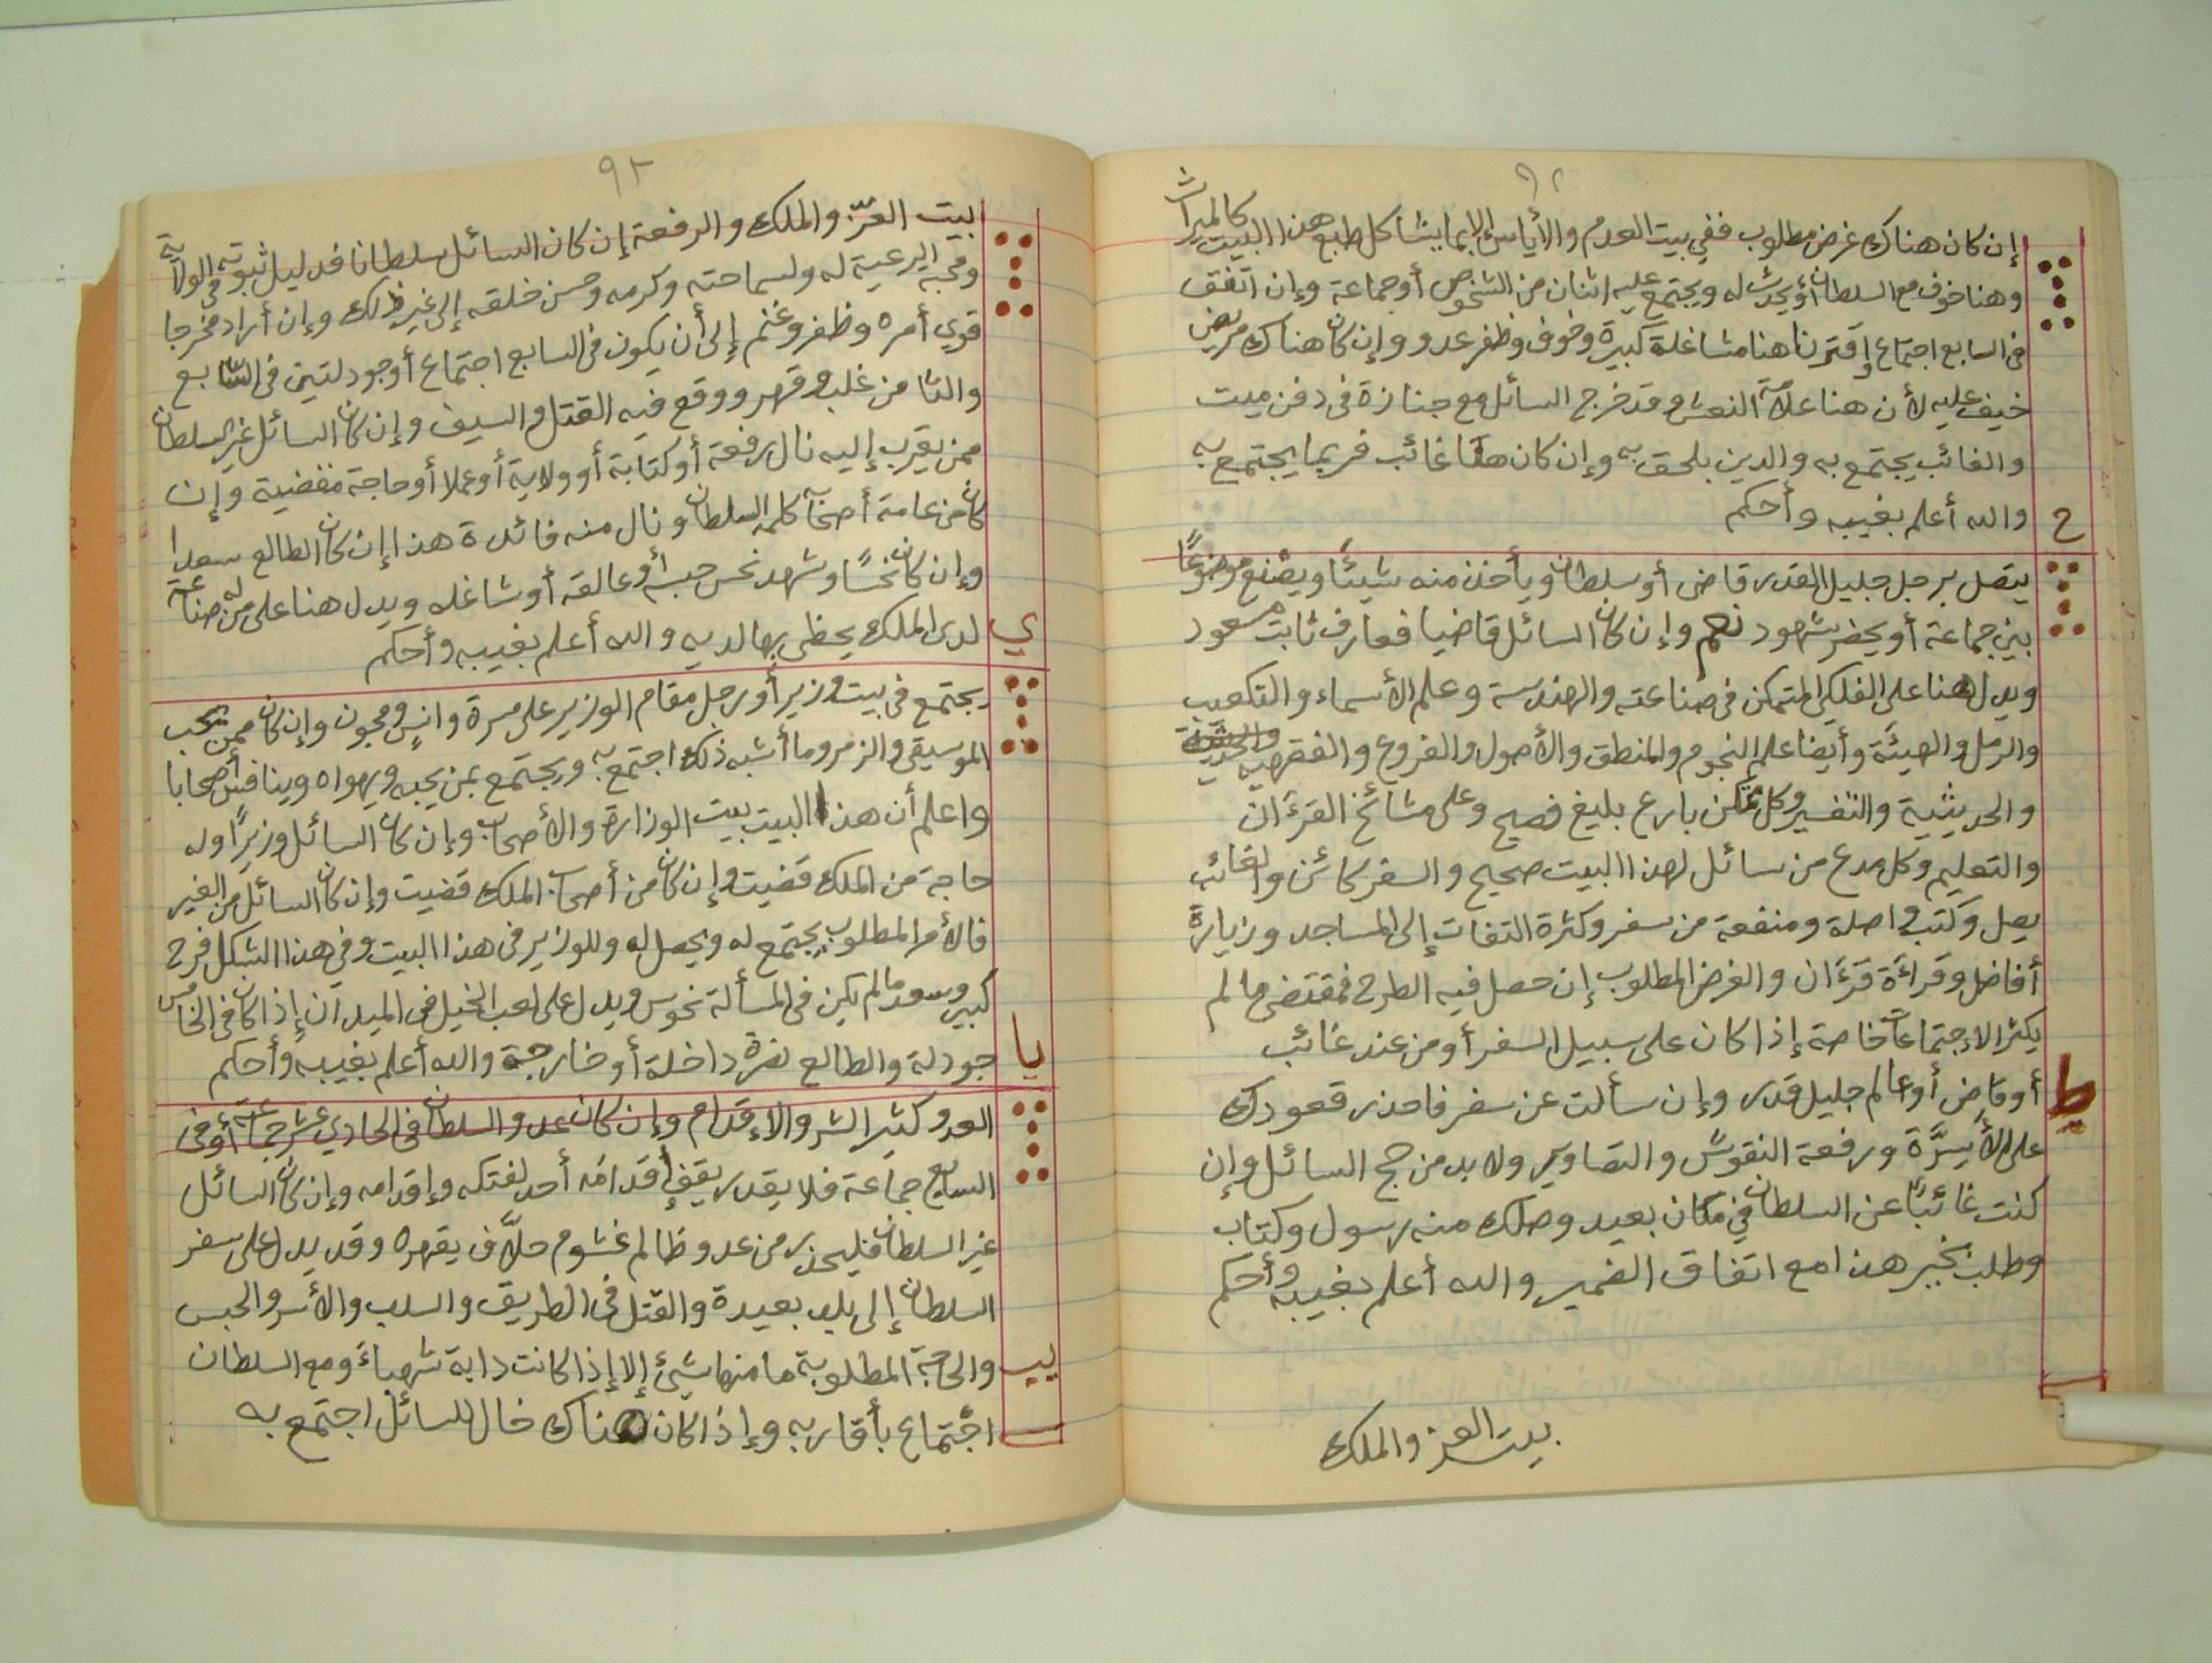 ٩٢
إن كان هناك غرض مطلوب ففي بيت العدم والأياس إلا بما يشاكل طبع هذا البيت كالميراث
وهنا خوف مع السلطان أو يحدث له ويجتمع عليه اثنان من الشخوص أو جماعة وإن اتفق
في السابع اجتماع واقترنا هنا مشاغلة كبيرة وخوف وظفر عدو وإن كان هناك مريض
خيف عليه لأن هنا علامة النعش وقد خرج السائل مع جنازة في دفن ميت
والغائب يجتمع به والدين يلحق به وإن كان هنا غائب فربما يجتمع به
والله أعلم بغيبه وأحكم
ح
يتصل برجل جليل القدر قاضى أو سلطان ويأخذ منه شيئًا ويصنع موضوعًا
بين جماعة أو يحضر شهود نعم وإن كان السائل قاضيا فعارف ثابت مسعود
ويدل هنا على الفلكي المتمكن في صناعته والهندسة وعلم الأسماء والتكعيب
والرمل والهيئة وأيضا علم النجوم والمنطق والأصول والفروع والفقهية
والحديثية والتفسير وكل متمكن بارع بليغ فصيح وعلى مشائخ القرءان
والتعليم وكل مدع من سائل لهذا البيت صحيح والسفر كائن والغائب
يصل وكتب واصلة ومنفعة من سفر وكثرة التفات إلى المساجد وزيارة
أفاضل وقراءة قرءان والغرض المطلوب إن حصل فيه الطرح فمقتضى ما لم
يكثر الاجتماعات خاصة إذا كان على سبيل السفر أو من عند غائب
أو قاض أو عالم جليل قدر وإن سألت عن سفر فاحذر قعودك
ط
على الأسِرَّة ورفعة النقوش والتصاوير ولا بد من حج السائل وإن
كنت غائبًا عن السلطان في مكان بعيد وصلك منه رسول وكتاب
وطلب بخير هذا مع اتفاق الضمير والله أعلم بغيبه وأحكم
بيت العز والملك
٩٣
بيت العزّ والملك والرفعة إن كان السائل سلطانا فدليل ثبوته في الولاية
ومحبة الرعية له ولسماحته وكرمه وحسن خلقه إلى غير ذلك وإن أراد مخرجا
قوي أمره وظفر وغنم إلى أن يكون في السابع اجتماع أو جودلتين في السابع
والثامن غلب وقهر ووقع فيه القتل والسيف وإن كان السائل غير السلطان
ممن يقرب إليه نال رفعة أو كتابة أو ولاية أو عملا أو حاجة مقضية وإن
كان من عامة أصحابه كلمه السلطان ونال منه فائدة هذا إن كان الطالع سعدا
وإن كان نحسًا وشهد نحس حبسه أو عالقه أو شاغله ويدل هنا على من له صناعة
لدى الملك يحظى بها لديه والله أعلم بغيبه وأحكم
ي
يجتمع في بيت وزير أو رجل مقام الوزير على مسرة وانس ومجون وإن كان ممن يحب
الموسيقى والزمر وما أشبه ذلك اجتمع به ويجتمع بمن يحبه ويهواه وينافس أصحابا
واعلم أن هذا البيت بيت الوزارة والأصحاب وإن كان السائل وزيرًا وله
حاجة من الملك قضيت وإن كان من أصحاب الملك قضيت وإن كان السائل من الغير
فالأمر المطلوب يجتمع له ويحصل له وللوزير في هذا البيت وفي هذا الشكل فرح
كبير وسعد ما لم يكن في المسألة نحوس ويدل على لعب الخيل في الميدان إذا كان في الخامس
جودلة والطالع نصرة داخلة أو خارجة والله أعلم بغيبه وأحكم
يا
العدو كثير الشر والإقدام وإن كان عدو السلطان في الحادي عشر جماعة أو في
السابع جماعة فلا يقدر يقف قدامه أحد لفتكه وإقدامه وإن كان السائل
غير السلطان فليحذر من عدو ظالم غشوم حلّاف يقهره وقد يدل على سفر
السلطان إلى بلد بعيدة والقتل في الطريق والسلب والأسر والحبس
والحاجة المطلوبة ما منها شيئ إلا إذا كانت دابة شهباء ومع السلطان
يب
اجتماع بأقاربه وإذا كان هناك خال للسائل اجتمع به